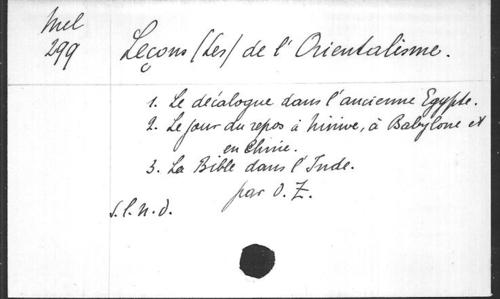 Mel
299
Leçons (Les) de l'Orientalisme.
1. Le décalogue dans l'ancienne Egypte.
2. Le jour du repos à Ninive, à Babylone et
en Chine.
3. La Bible dans l'Inde.
par O. Z.
S.l.n.d.